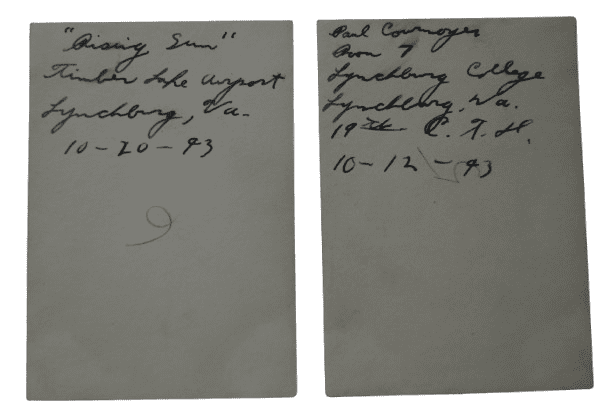 "Rising Sun"
Timber Lake Airport
Lynchburg, Va.
10-20-43
9
Paul Cournoyer
Room 7
Lynchburg College
Lynchburg, Va.
19th C. T. D.
10-12-43